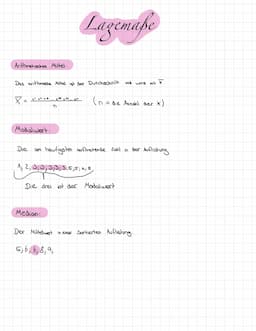 Lagemaße
Arithmetisches Mittel:
Das arithmetische Mittel ist der Durchschnitt und wird mit x̄
x̄ = n (n = die Anzahl der x)
Modalwert:
Die am häufigsten auftretende Zahl in der Aufzählung
1, 2, 3, 3, 3, 3, 5, 5, 4, 5
Die drei ist der Modalwert
Median:
Der Mittelwert in einer sortierten Aufzählung
5, 6, 8, 9,